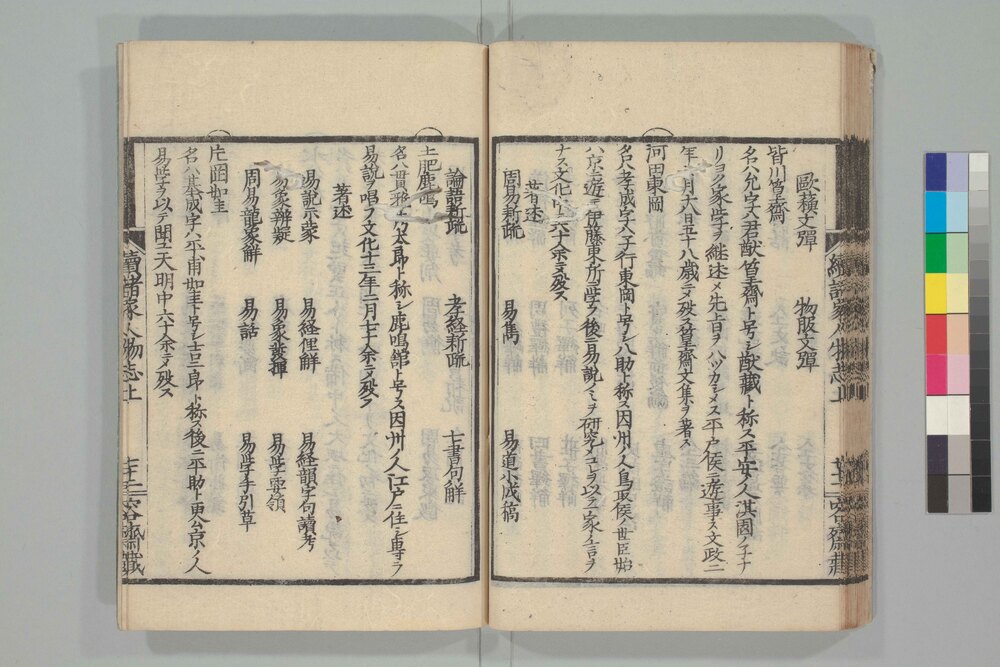 歐蘓文彈　物服文彈
皆川篁齋
名ハ允字ハ君猷篁齋ト号シ猷藏ト称ス平安ノ人淇園ノ子ナ
リヨク家学ヲ継述メ先旨ヲハツカシメス平戸侯ニ遊事ス文政二
年 月六日五十八歳ニテ殁ス篁齋文集ヲ著ス
河田東岡
名ハ孝成字ハ子行東岡ト号シ八助ト称ス因州ノ人鳥取侯ノ世臣始
ハ京ニ遊ニ伊藤東所ニ学ヲ後ニ易説ノミヲ研究メコレヲ以テ一家ノ言ヲ
ナス文化 六十余ニテ殁ス
著述
周易新疏　易雋　易道小成稿
論語新疏　孝経新疏　七書句解
土肥鹿鳴
名ハ貫雅 太郎ト称シ鹿鳴舘ト号ス因州ノ人江戸ニ住シ專ヲ
易説ヲ唱フ文化十三年二月七十余ニテ殁ス
著述
易説示蒙　易経俚解　易経韻字句讀考
易象辨疑　易象發揮　易学要領
周易龍象解　易話　易学手引草
片岡如圭
名ハ基成字ハ平甫如圭ト号シ吉三郎ト称ス後ニ平助ト更ム京ノ人
易学ヲ以テ聞ニ天明中六十余ニテ殁ス
續諸家人物志上